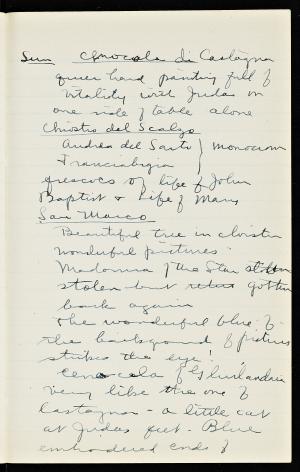 Sun Cenocola di Castagna
queer hard painting full of
vitality with Judas on
one side of table alone
Chiostro del Scalzo
Andrea del Sarto } monocrom
Franciabigia
frescoes of life of John
Baptist & Life of Mary
San Marco
Beautiful tree in cloister
wonderful pictures.
Madonna of the Star
stolen but gotten
back again
The wonderful blue of
the background of pictures
strikes the eye!
Cenocola of Ghirlandaia
very like the one of
Castagna - a little cat
at Judas feet. Blue
embrodered ends of